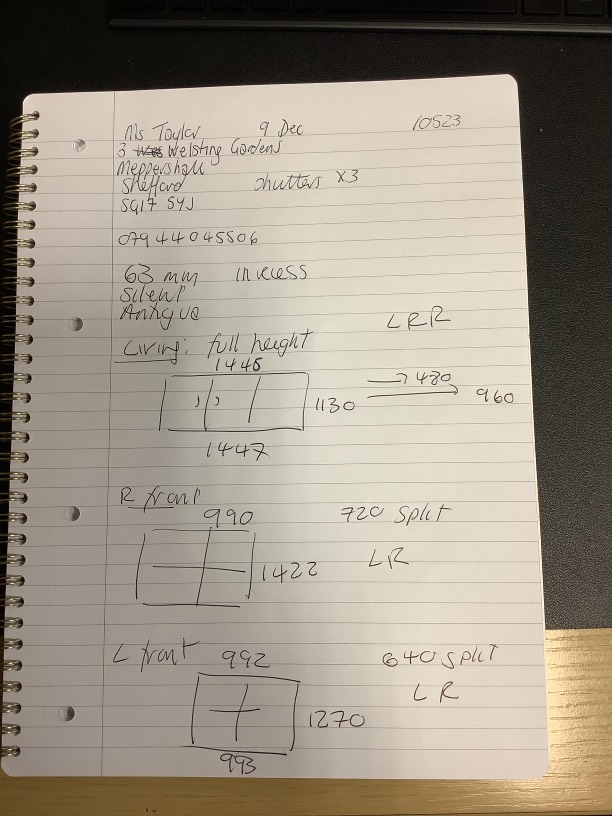 Ms Taylor 9 Dec 10523
3 Welsting Gardens
Meppershall
Shefford shutters x3
SG17 5YJ
07944045506
63 mm in recess
Silent
Antique
LRR
Living: full height
1446
1130 → 480
→ 960
1447
R front
990 720 split
1422 LR
L front 992 640 split
LR
1270
993